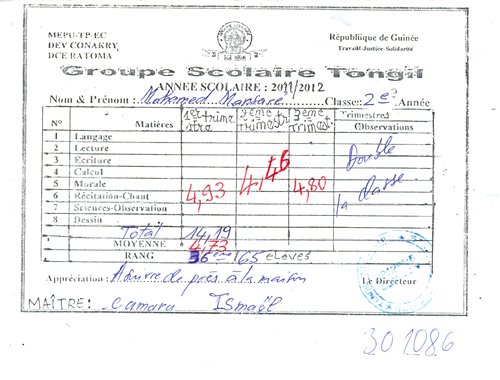 MEPU-TP-EC République de Guinée
DEV CONAKRY Travail-Justice-Solidarité
DCE RATOMA
Groupe Scolaire Tongil
ANNEE SCOLAIRE : 2011/2012
Nom & Prénom : Mohamed Mansaré Classe: 2e Année
N° Matières 1er trimestre 2ème trimestre 3ème trimest. Trimestres Observations
1 Langage
2 Lecture
3 Ecriture
4 Calcul
5 Morale
6 Récitation-Chant 4,93 4,46 4,80
7 Sciences-Observation
8 Dessin
Double la classe
Total 14,19
MOYENNE 4,73
RANG 36ème/65 élèves
Appréciation : A suivre de près à la maison Le Directeur
MAÎTRE: Camara Ismaël
301086